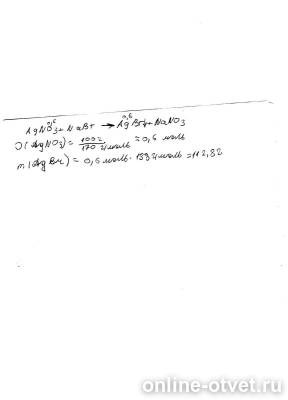 0,6 0,6
AgNO3 + NaBr → AgBr↓ + NaNO3
υ(AgNO3) = 100г / 170 г/моль = 0,6 моль
m(AgBr) = 0,6 моль · 188 г/моль = 112,8г
online-otvet.ru